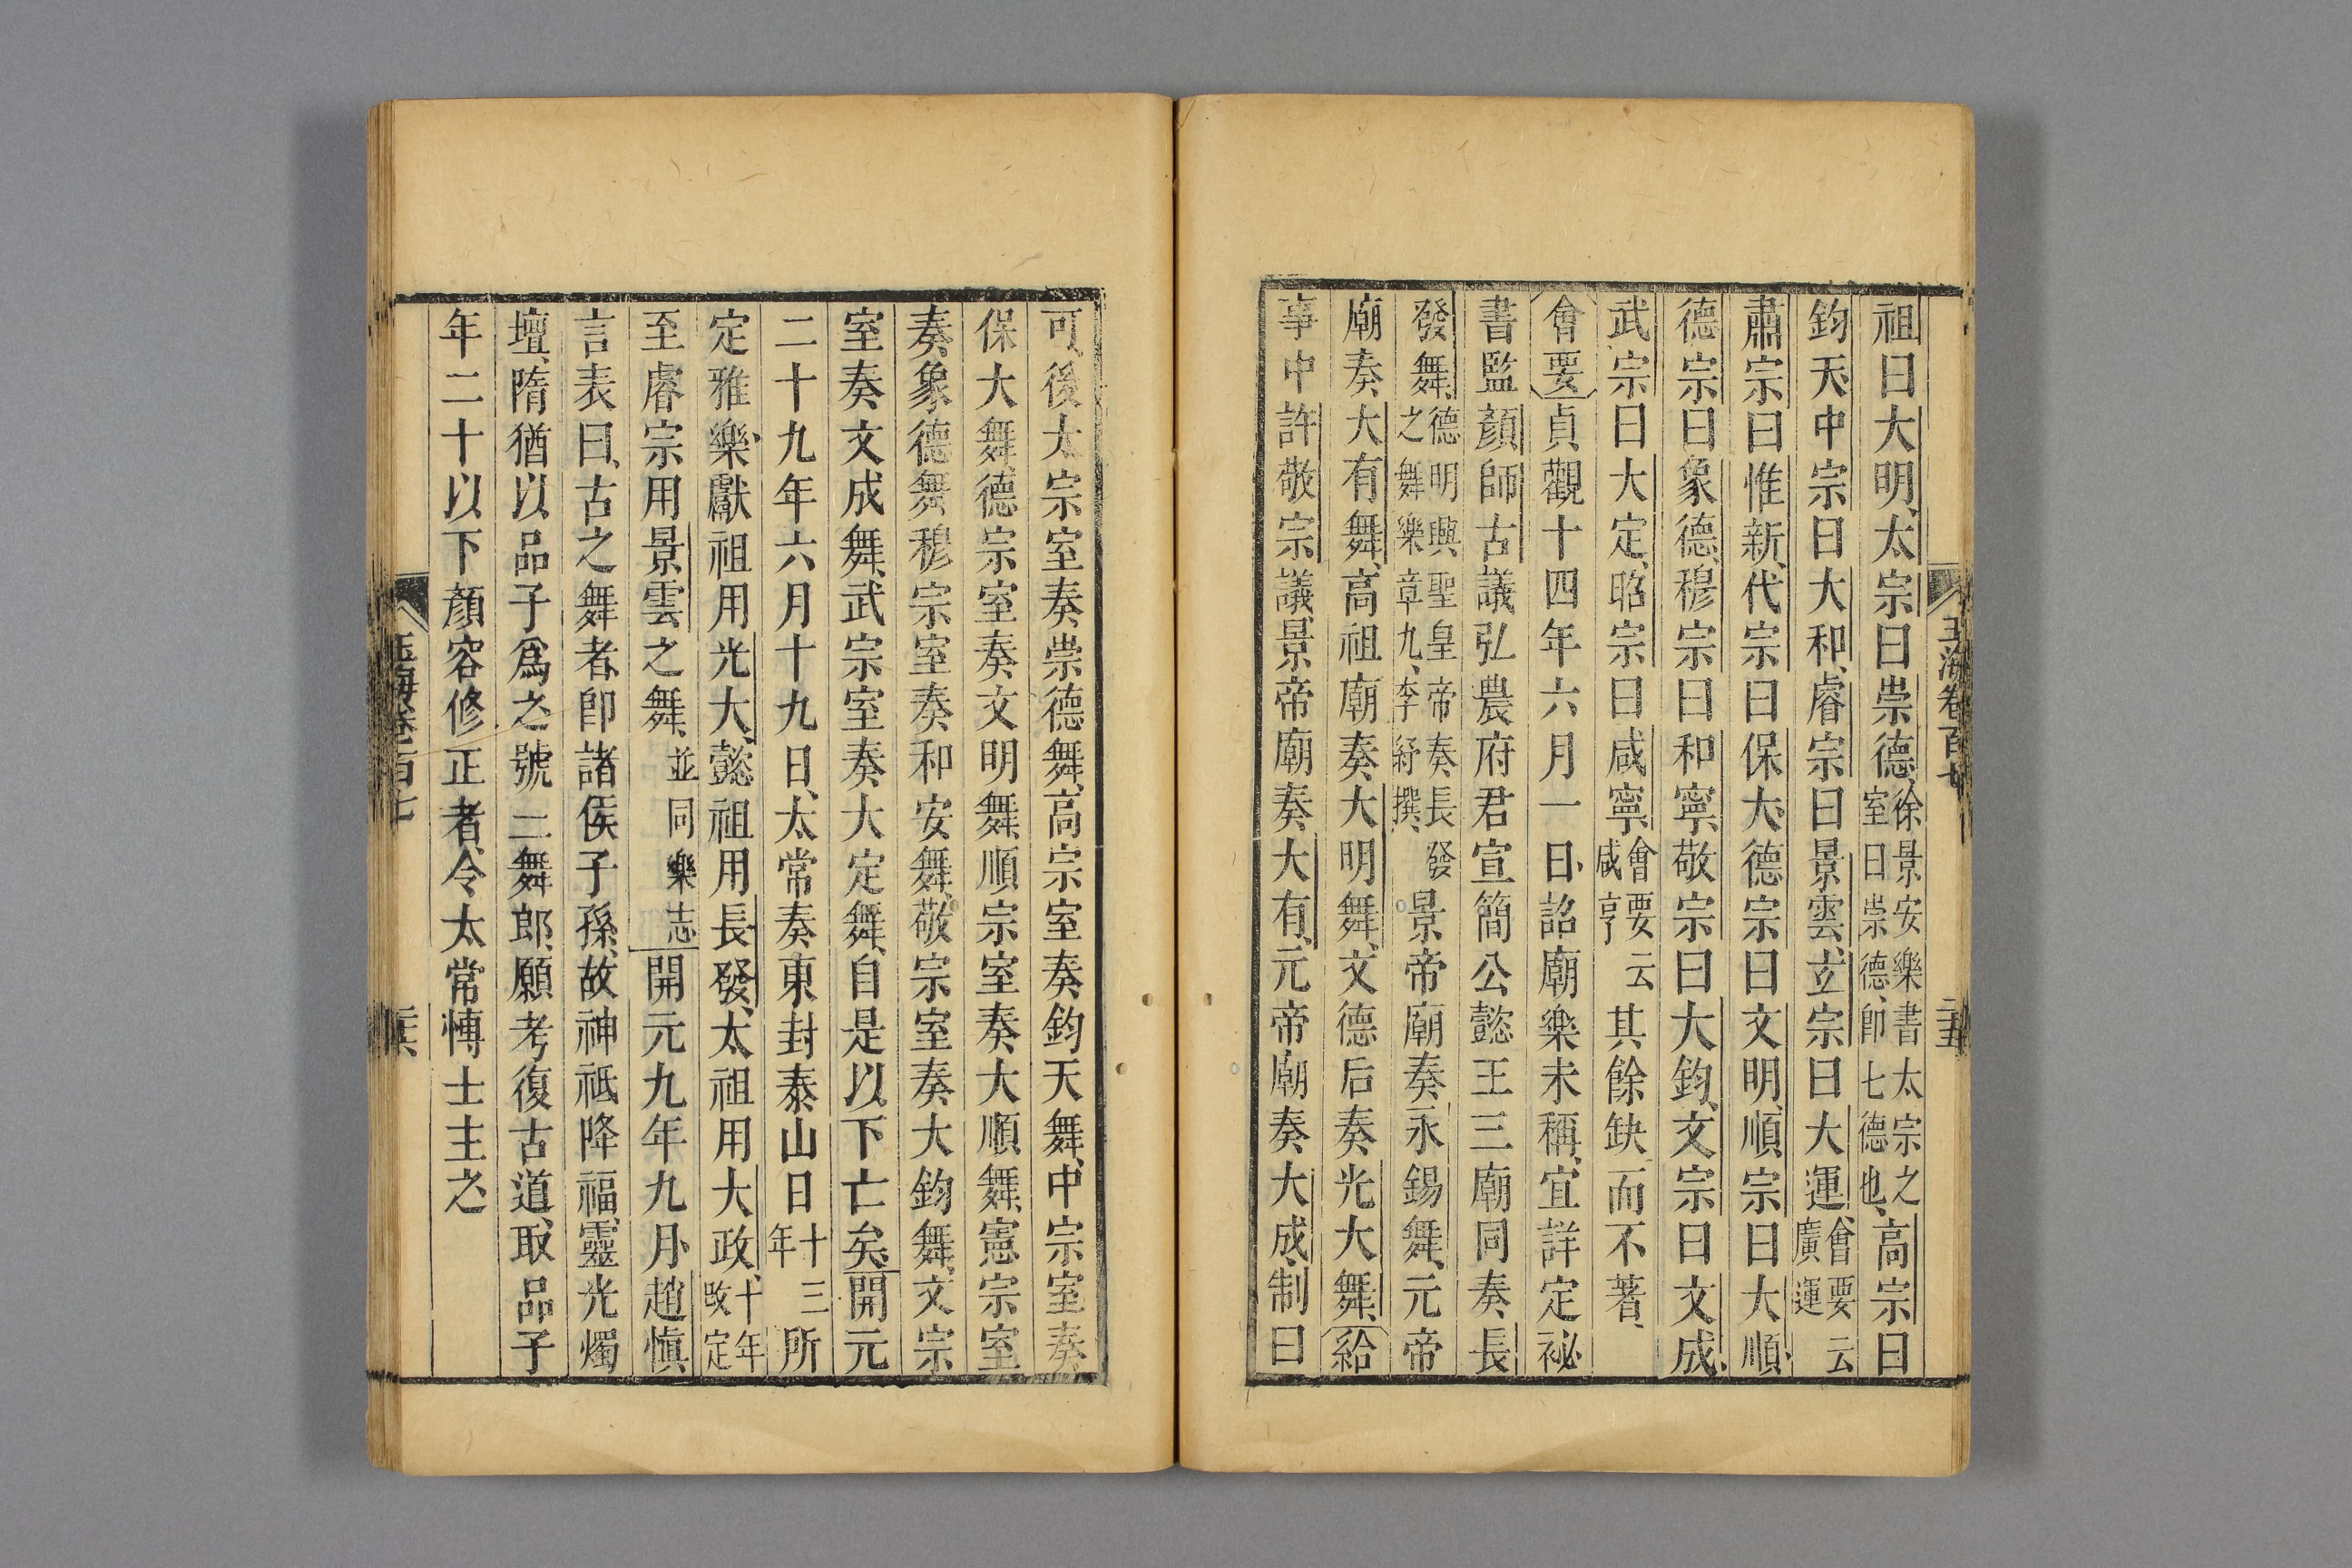 祖曰大明、太宗曰崇德、徐景安樂書太宗之室曰崇德、卽七德也、高宗曰
鈞天、中宗曰大和、睿宗曰景雲、玄宗曰大運、會要云廣運
肅宗曰惟新、代宗曰保大、德宗曰文明、順宗曰大順、
德宗曰象德、穆宗曰和寧、敬宗曰大鈞、文宗曰文成、
武宗曰大定、昭宗曰咸寧、會要云咸亨其餘缺而不著、
會要貞觀十四年六月一日、詔廟樂未稱、宜詳定祕
書監顏師古議弘農府君宣簡公懿王三廟同奏、長
發舞、德明興聖皇帝奏長發之舞樂章九、李紓撰、景帝廟奏永錫舞、元帝
廟奏、大有舞、高祖廟奏、大明舞、文德后奏光大舞、給
事中許敬宗議、景帝廟奏大有、元帝廟奏大成、制曰
玉海卷百七
二十五
可、後太宗室奏崇德舞、高宗室奏鈞天舞、中宗室奏
保大舞、德宗室奏文明舞、順宗室奏大順舞、憲宗室
奏、象德舞穆宗室奏和安舞、敬宗室奏大鈞舞、文宗
室奏文成舞、武宗室奏大定舞、自是以下亡矣、開元
二十九年六月十九日、太常奏東封泰山日十三年所
定雅樂、獻祖用光大、懿祖用長發、太祖用大政、十年改定
至睿宗用景雲之舞、並同樂志開元九年九月、趙愼
言表曰、古之舞者、卽諸侯子孫、故神祇降福、靈光燭
壇、隋猶以品子爲之號二舞郎、願考復古道、取品子
年二十以下顏容修正者、令太常博士主之
玉海卷百七
二十六